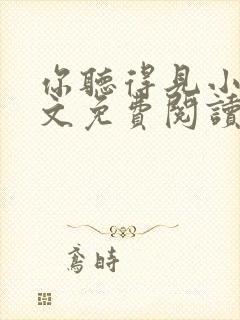 你聽得見小
文免費閱讀
鳶時